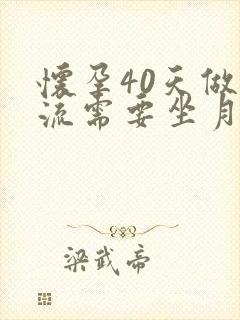 懷孕40天做
流需要坐月
梁武帝